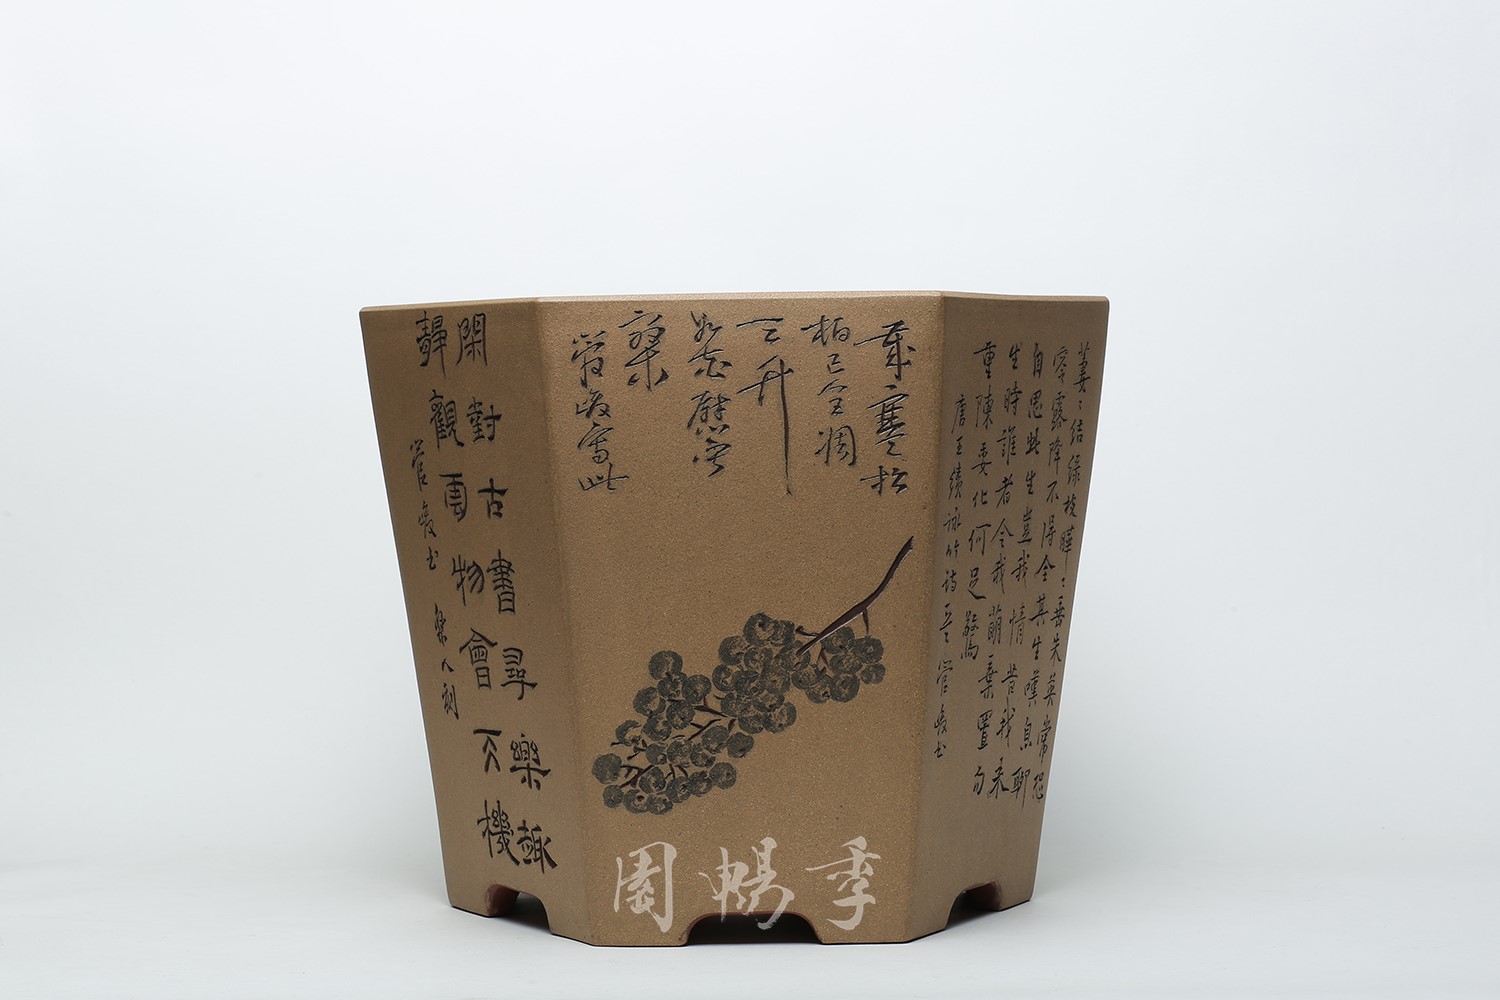 萋〻結綠枝曄〻垂朱英常恐
零露降不得全其生嘆息聊
自思此生豈我情昔我未
生時誰者令我萌棄置勿
重陳委化何足驚
唐王績詠 詩 管峻書
歲寒松
柏已全凋
管峻寫此
閑對古書尋樂趣
靜觀雲物會天機
管峻書 樂人刻
季暢園